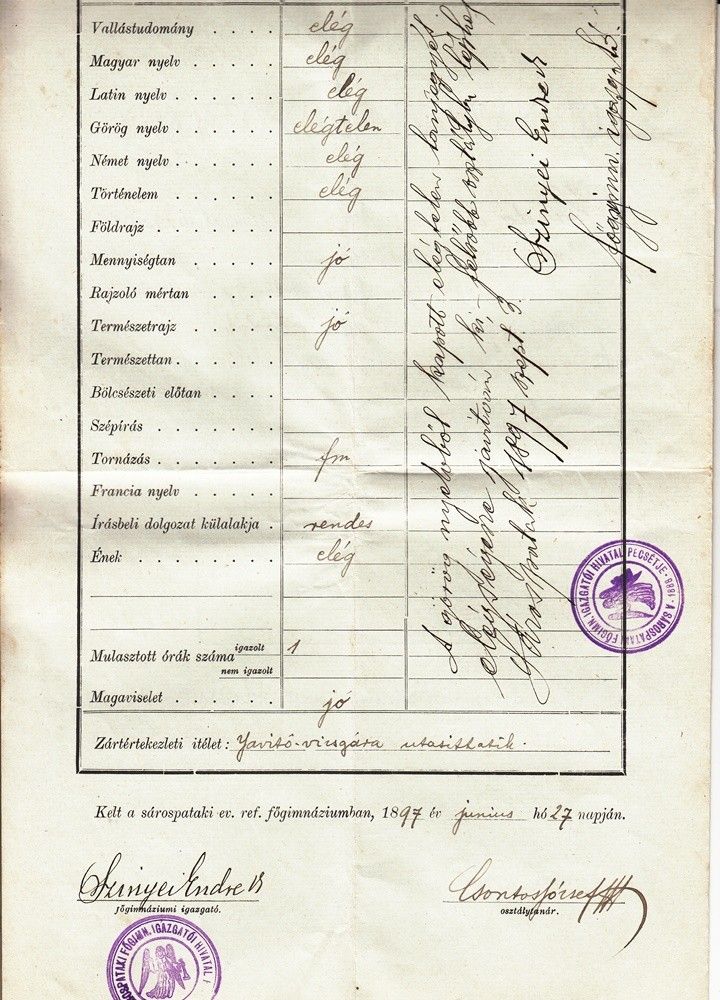 Vallástudomány . . . . elég
Magyar nyelv . . . . . elég
Latin nyelv . . . . . . elég
Görög nyelv . . . . . . elégtelen
Német nyelv . . . . . . elég
Történelem . . . . . . elég
Földrajz . . . . . . .
Mennyiségtan . . . . . jó
Rajzoló mértan . . . .
Természetrajz . . . . . jó
Természettan . . . . . .
Bölcsészeti előtan . . . .
Szépírás . . . . . . .
Tornázás . . . . . . . fm
Francia nyelv . . . . .
Írásbeli dolgozat külalakja . rendes
Ének . . . . . . . . elég
Mulasztott órák száma igazolt 1
nem igazolt
Magaviselet . . . . . . jó
A görög nyelvből kapott elégtelen tanjegyét
elégségesre javítván ki, felsőbb osztályba léphet
Sárospatak 1897 szept. 3.
Szinyei Endre
főgimn. igazgató.
A SÁROSPATAKI FŐGIMN. IGAZGATÓI HIVATAL PECSÉTJE · 1888 ·
Zártértekezleti itélet: Javitó-vizsgára utasíttatik.
Kelt a sárospataki ev. ref. főgimnáziumban, 1897 év junius hó 27 napján.
Szinyei Endre
főgimnáziumi igazgató.
Csontos József
osztálytanár.
SÁROSPATAKI FŐGIMN. IGAZGATÓI HIVATAL